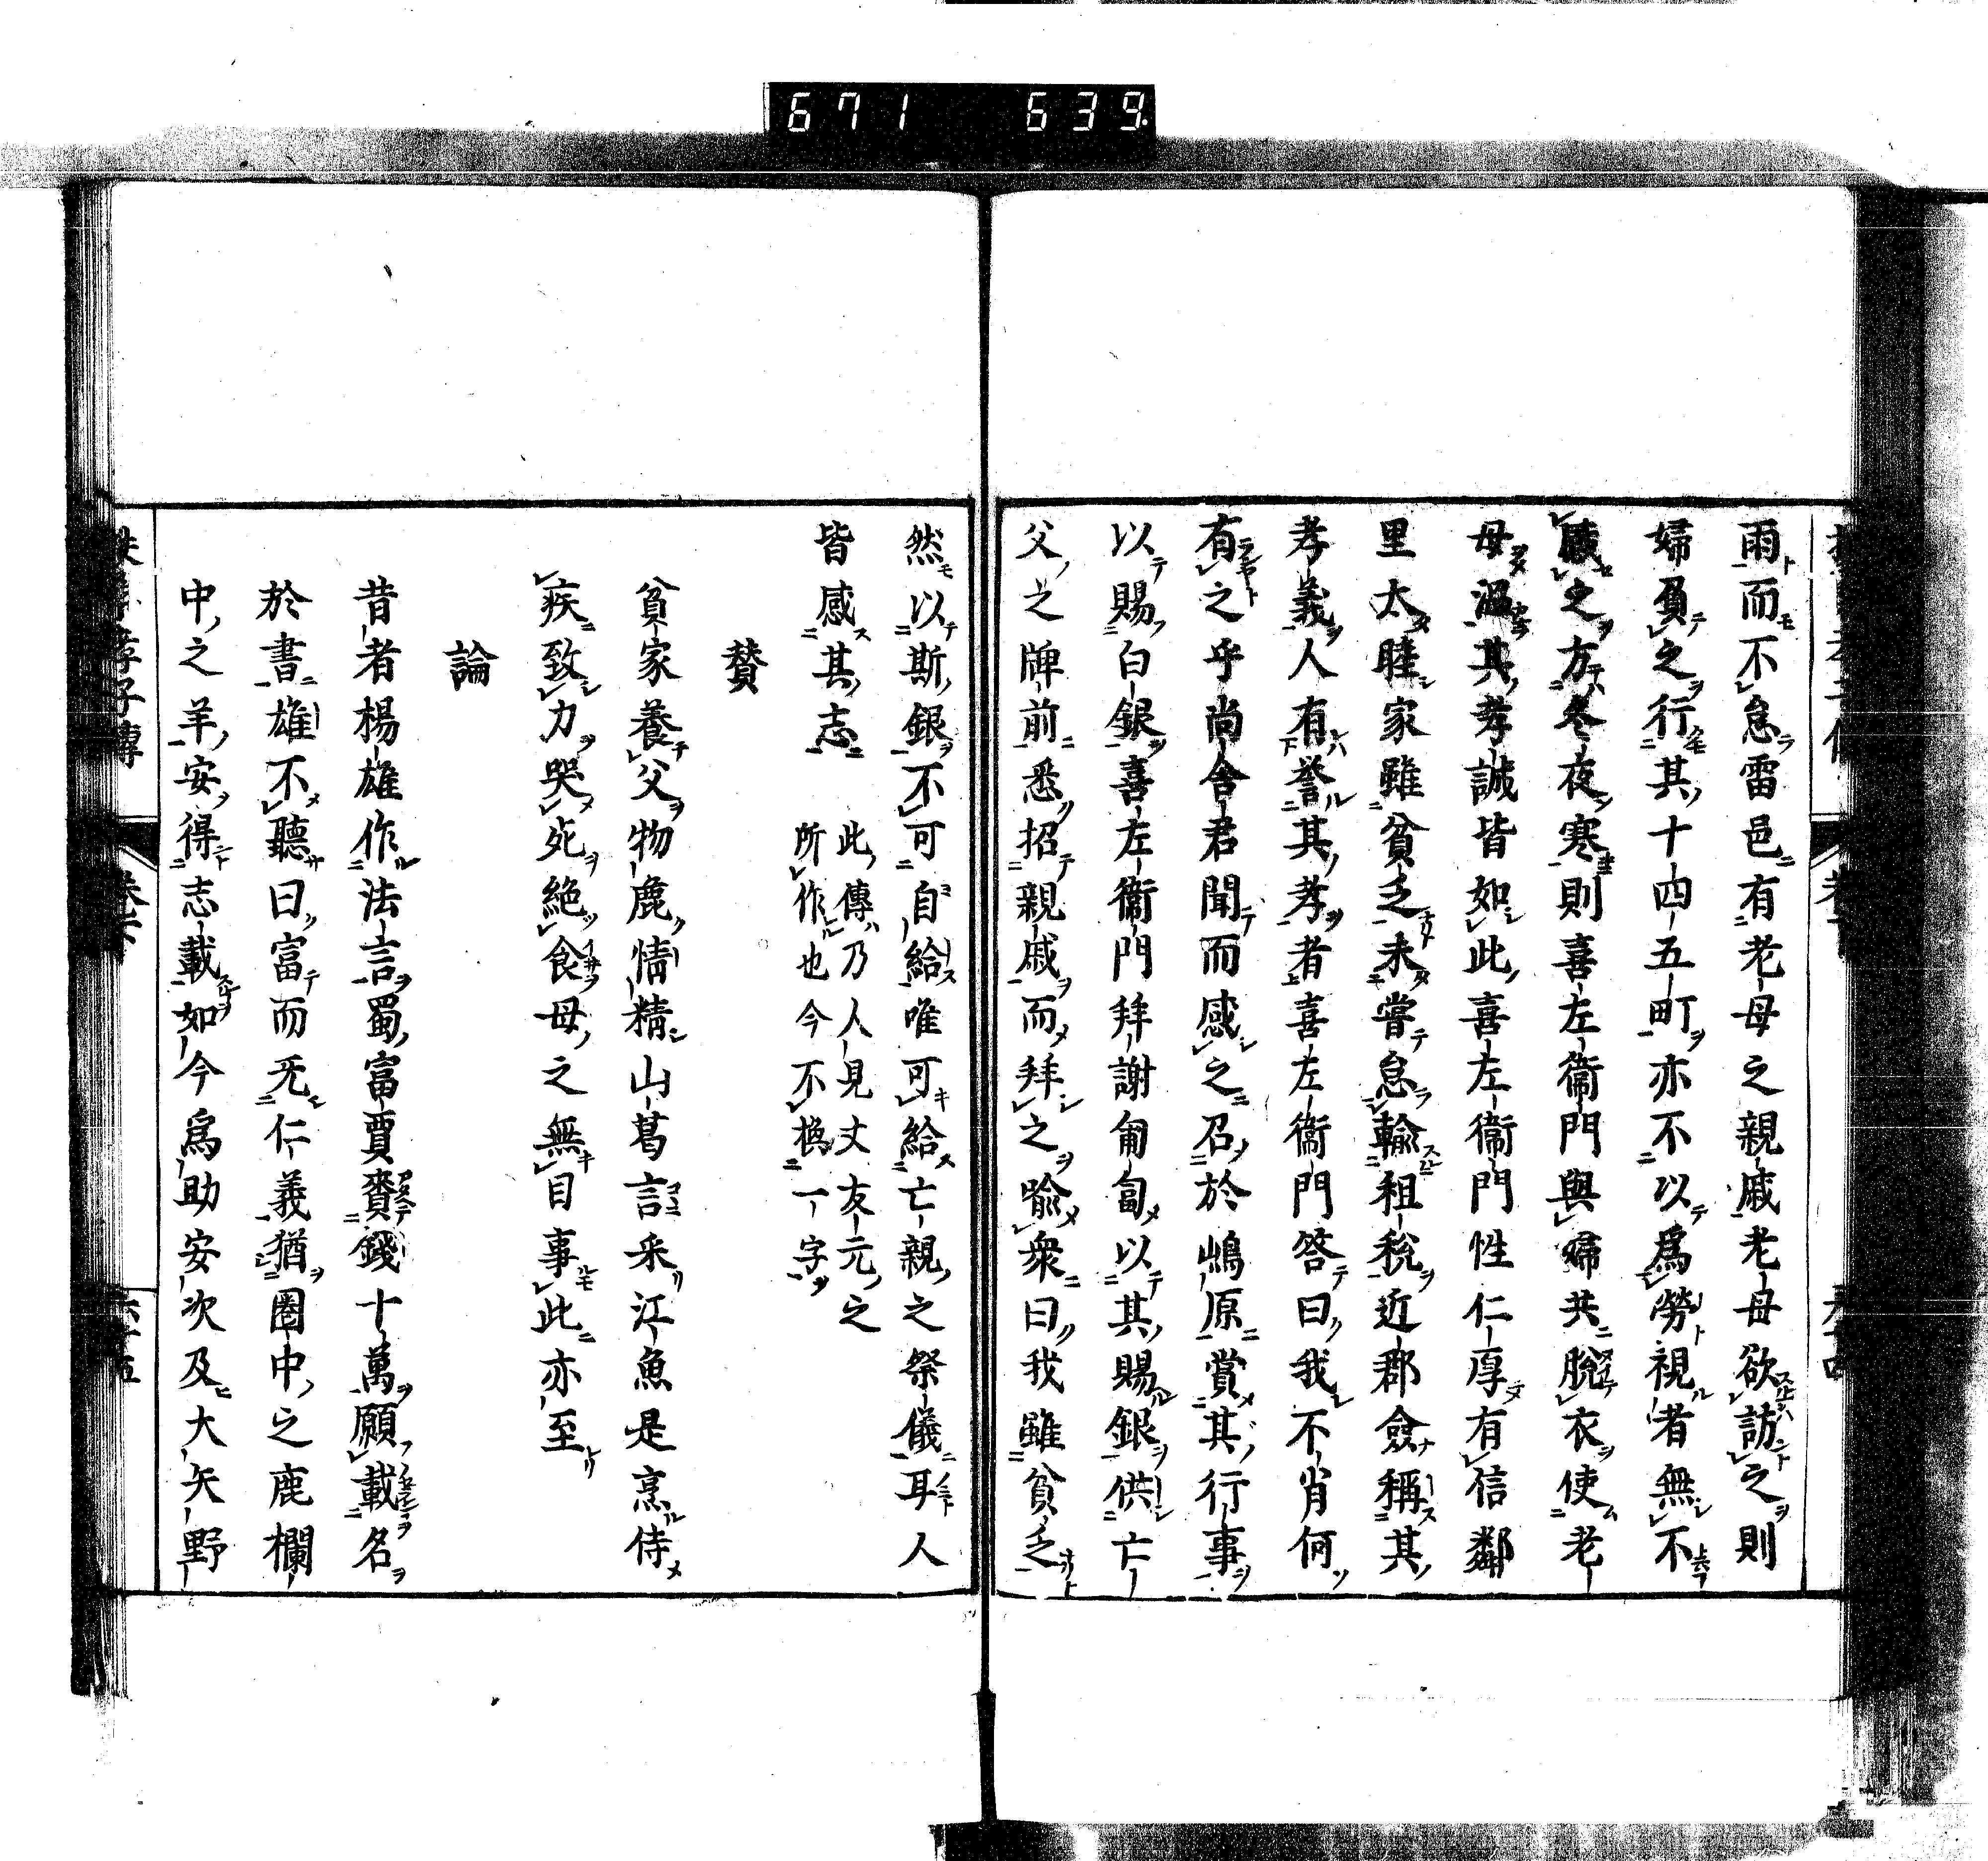 671 639
雨而不怠雷邑有老母之親戚老母欲訪之則
婦負之行其十四五町亦不以為勞視者無不
感之方冬夜寒則喜左衞門與婦共脫衣使老
母溫其孝誠皆如此喜左衞門性仁厚有信鄰
里太睦家雖貧乏未嘗怠輸租稅近郡僉稱其
孝義人有譽其孝者喜左衞門答曰我不肖何
有之乎尚舍君聞而感之召於嶋原賞其行事
以賜白銀喜左衞門拜謝匍匐以其賜銀供亡
父之牌前悉招親戚而拜之喩衆曰我雖貧乏
然以斯銀不可自給唯可給亡親之祭儀耳人
皆感其志 此傳乃人見丈友元之
所作也今不換一字
贊
貧家養父物麁情精山葛言采江魚是烹侍
疾致力哭死絕食母之無目事此亦至
論
昔者楊雄作法言蜀富賈賷錢十萬願載名
於書雄不聽曰富而无仁義猶圈中之鹿欄
中之羊安得志載如今爲助安次及大矢野
孝子傳
卷下